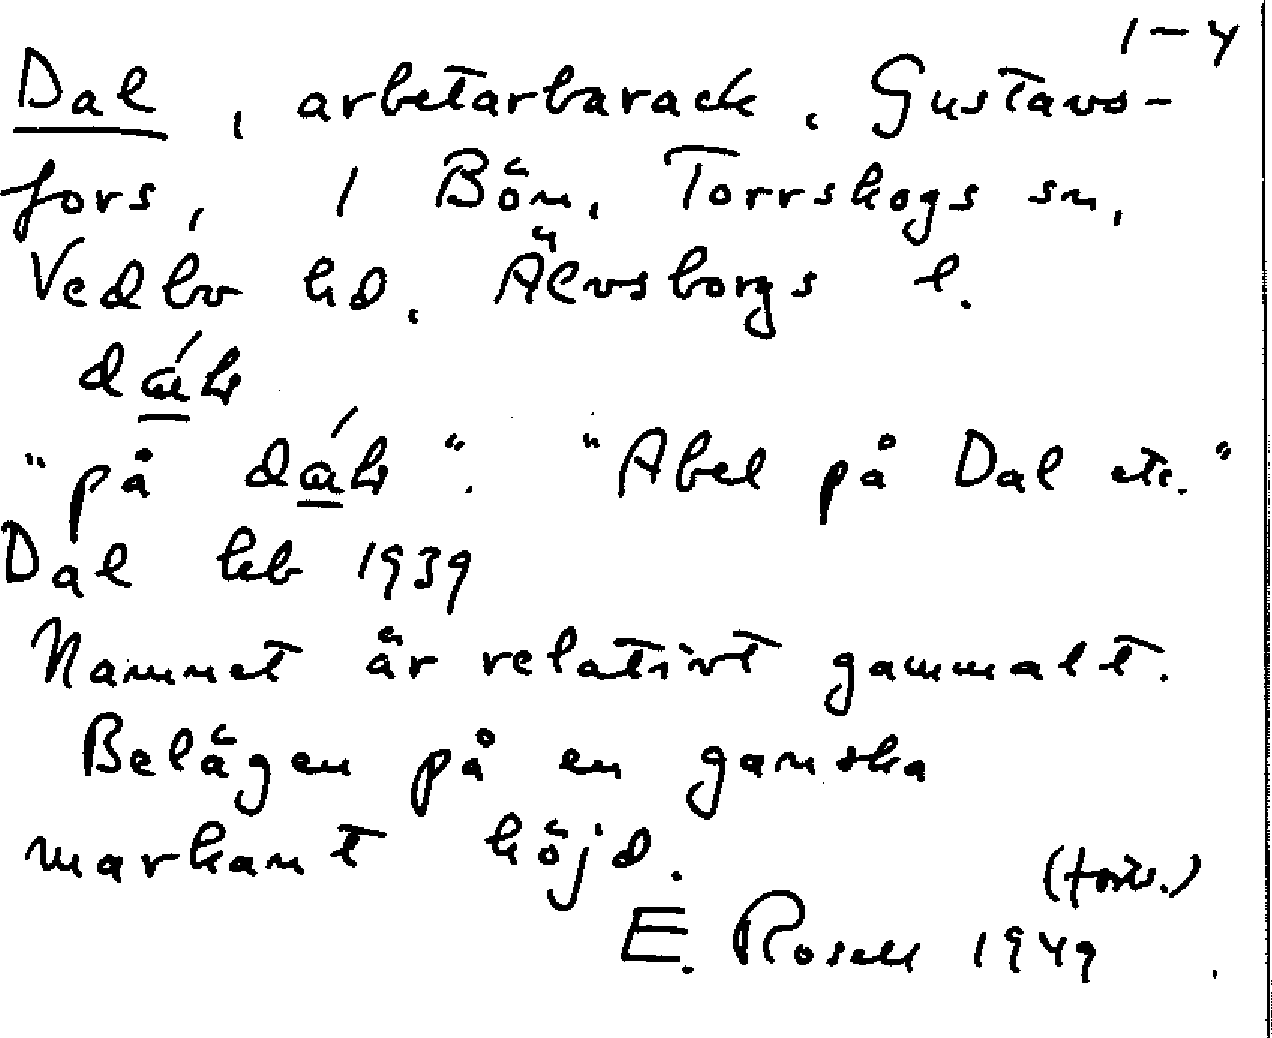 1-4
Dal, arbetarbarack, Gustavs-
fors, 1 Bön, Torrskogs sn,
Vedbo hd, Älvsborgs l.
"på
". "Abel på Dal etc."
Dal hb 1939
Namnet är relativt gammalt.
Belägen på en ganska
markant höjd.
(forts.)
E. Rosell 1949